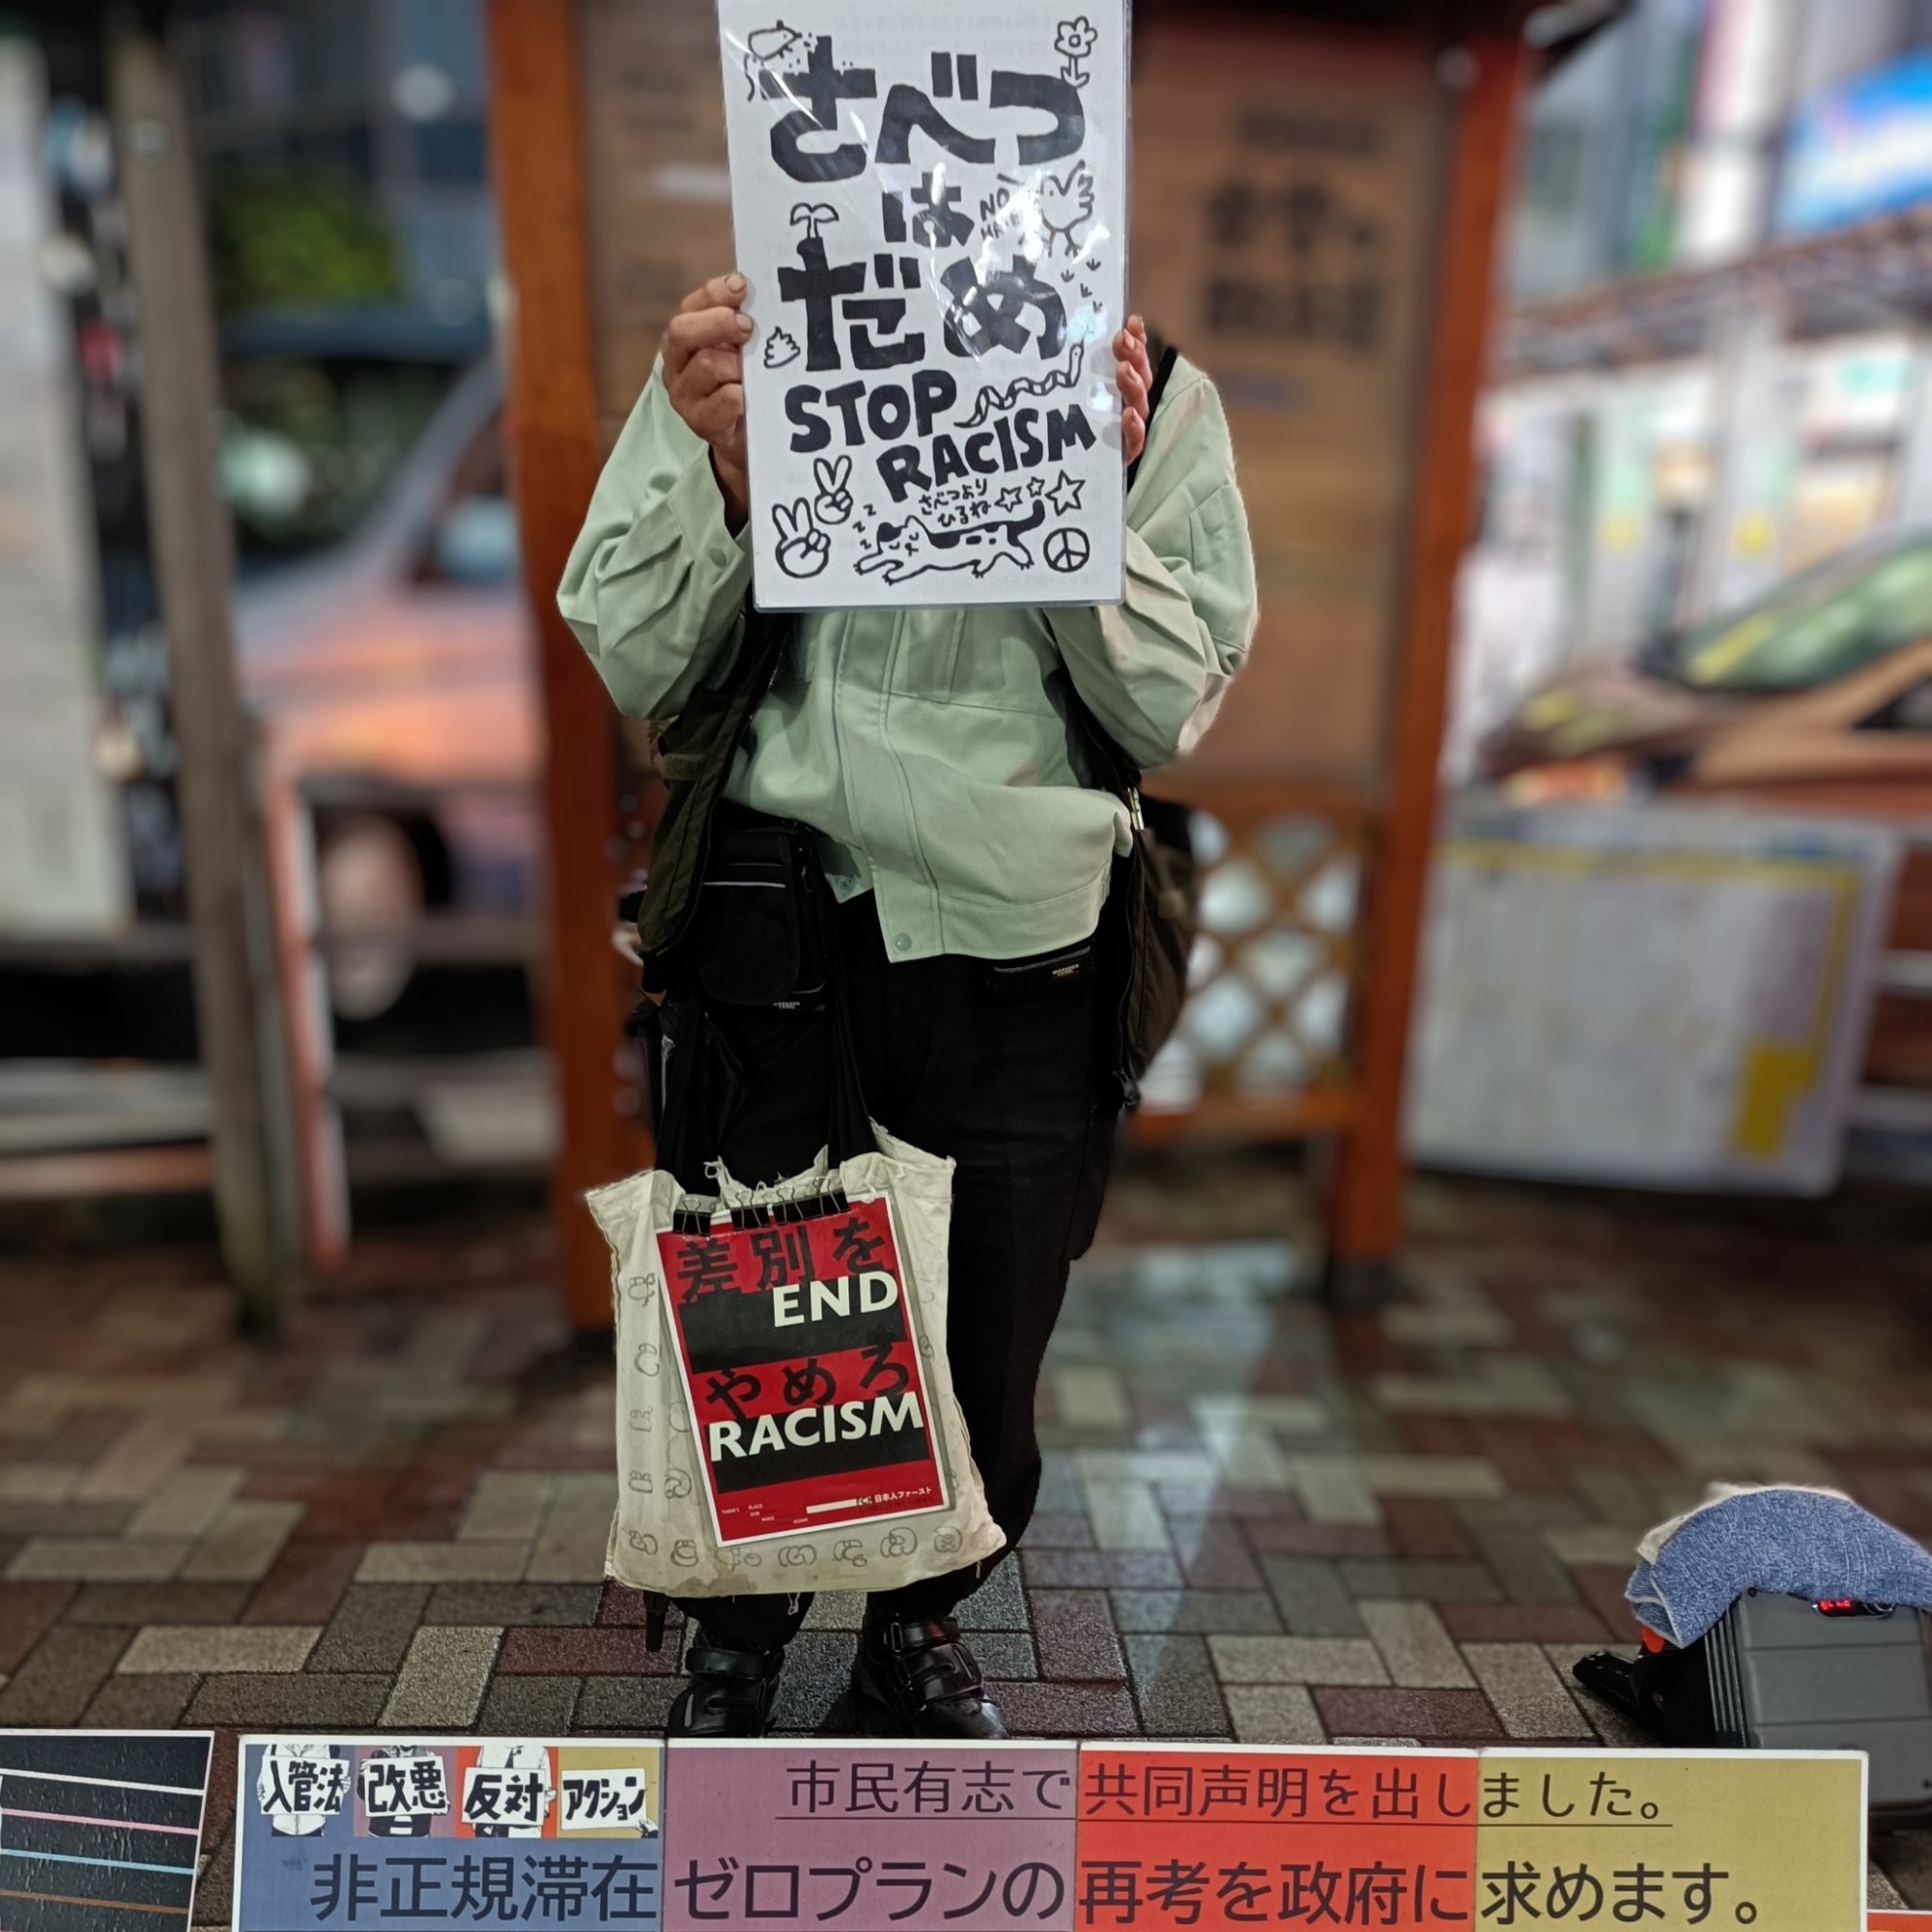 さべつ
は
NO
HATE
だめ
STOP
RACISM
さべつより
ひるね
z z z
差別を
END
やめろ
RACISM
日本人ファースト
入管法 改悪 反対 アクション
市民有志で共同声明を出しました。
非正規滞在ゼロプランの再考を政府に求めます。